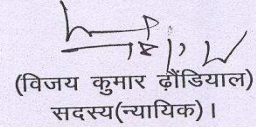 (विजय कुमार ढ़ौंडियाल)
सदस्य(न्यायिक)।